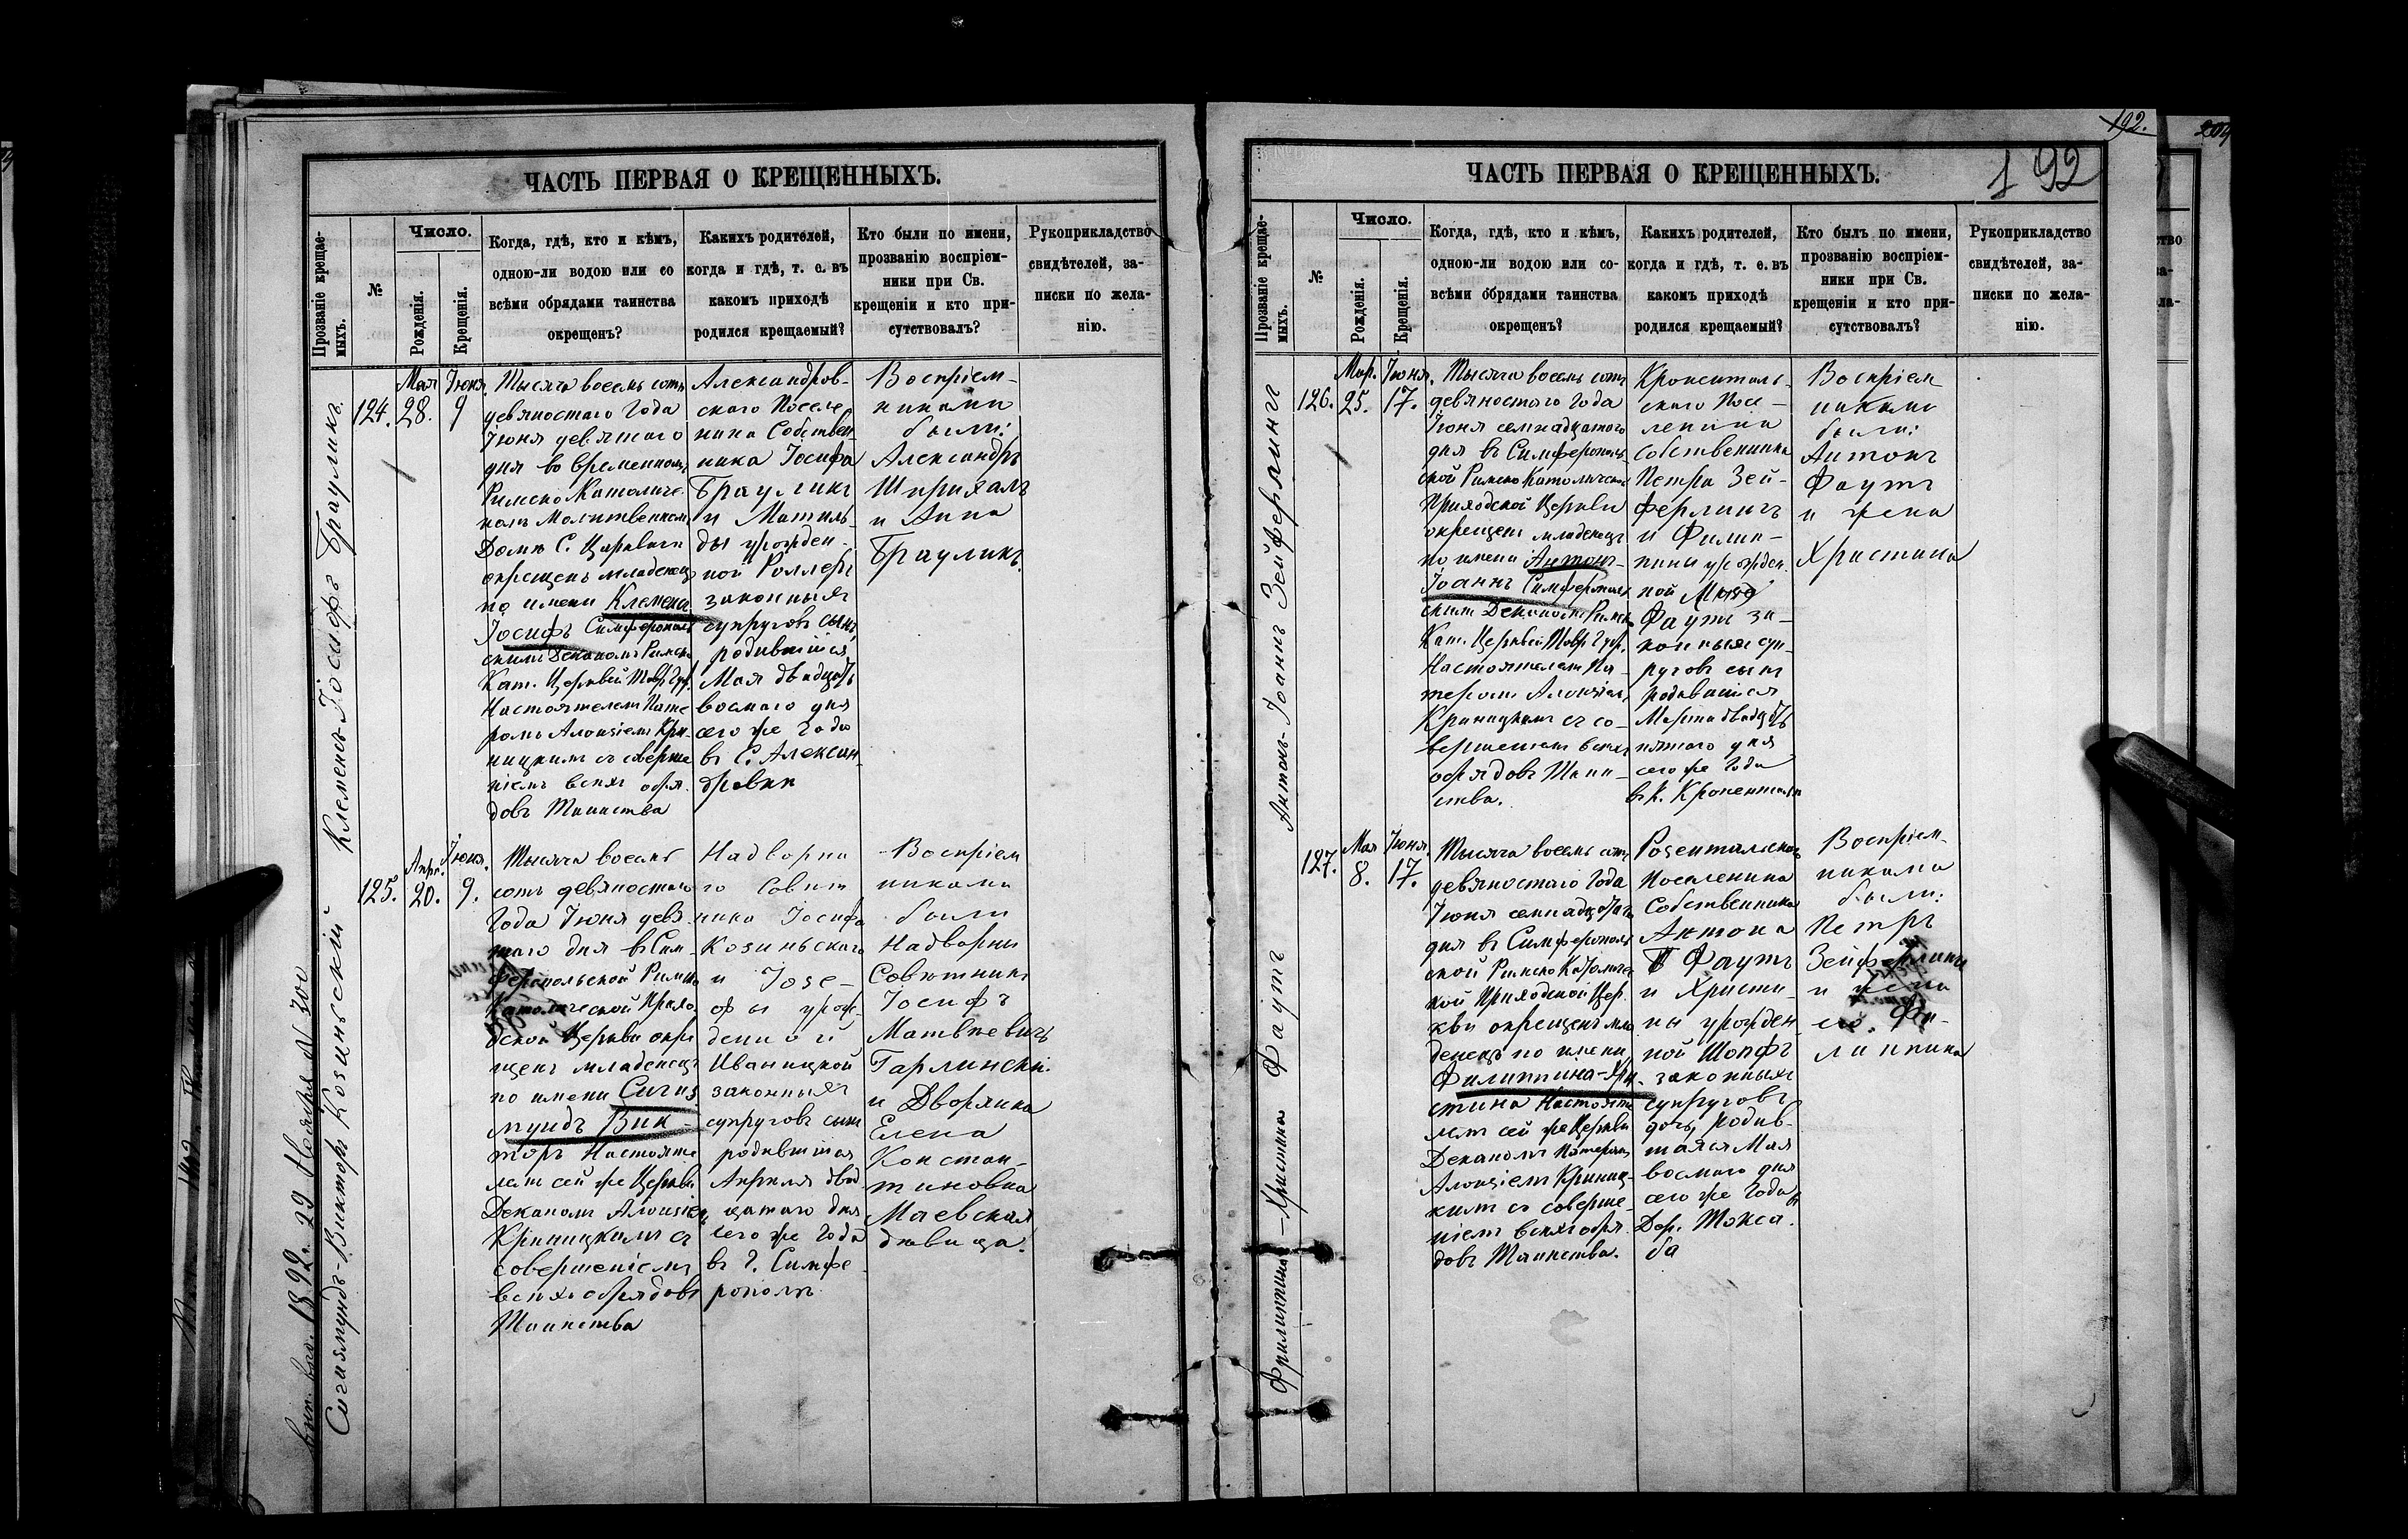 ЧАСТЬ ПЕРВАЯ О КРЕЩЕННЫХЪ.
Прозваніе крещае-
мыхъ.
№
Число.
Рожденія.
Крещенія.
Когда, гдѣ, кто и кѣмъ,
одною-ли водою или со
всѣми обрядами таинства
окрещенъ?
Какихъ родителей,
когда и гдѣ, т. е. въ
какомъ приходѣ
родился крещаемый?
Кто были по имени,
прозванію воспріем-
ники при Св.
крещеніи и кто при-
сутствовалъ?
Рукоприкладство
свидѣтелей, за-
писки по жела-
нію.
Клеменсъ-Іосифъ Брауликъ.
124.
Мая
28.
Іюня.
9
Тысяча восемь сотъ
девяностаго Года
Іюня девятаго
дня во временномъ
Римско Католиче.
комъ Молитвенномъ
Домѣ С. Царквичи
окрещенъ младенецъ
по имени Клеменсъ
Іосифъ Симферополь
скимъ Деканомъ Римск
Кат. Церквей Тавр Губ.
Настоятелемъ Пате
ромъ Алоизіемъ Кри-
ницкимъ съ соверше
ніемъ всѣхъ обря.
довъ Таинства
Александров-
скаго Поселе
нина Собствен
ника Іосифа
Браулика
и Матиль-
ды урожден-
ной Роллеръ
законныхъ
супруговъ сынъ,
родившійся
Мая двадцать
восмаго дня
сего же Года
въ С. Алексан
дровки
Воспріем-
никами
были:
Александръ
Шприхалъ
и Анна
Браулика.
вып. вно. 1892 г. 29 Ноября № 300
Сигизмундъ-Викторъ Козиньскій
125.
Апр.
20.
Іюня.
9.
Тысяча восемь
сотъ девяностаго
Года Іюня девя
таго дня въ Сим-
феропольской Римско
Католической Прихо.
дской Церкви окре
щенъ младенецъ
по имени Сигиз
мундъ Вик-
торъ Настояте
лемъ сей же Церкви
Деканомъ Алоизіемъ
Криницкимъ съ
совершеніемъ
всѣхъ обрядовъ
Таинства
Надворна
го Совѣт
ника Іосифа
Козиньскаго
и Іозе-
фы урож-
денной
Иваницкой
законныхъ
супруговъ сынъ
родившійся
Апреля двад
цатаго дня
сего же Года
въ г. Симфе
рополѣ
Воспріем
никами
были
Надворный
Совѣтникъ
Іосифъ
Матвѣевичъ
Гарлински.
и Дворянка
Елена
Констан-
тиновна
Маевская
дѣвица.
192.
192
ЧАСТЬ ПЕРВАЯ О КРЕЩЕННЫХЪ.
Прозваніе крещае-
мыхъ.
№
Число.
Рожденія.
Крещенія.
Когда, гдѣ, кто и кѣмъ,
одною-ли водою или со-
всѣми обрядами таинства
окрещенъ?
Какихъ родителей,
когда и гдѣ, т. е. въ
какомъ приходѣ
родился крещаемый?
Кто былъ по имени,
прозванію воспріем-
ники при Св.
крещеніи и кто при-
сутствовалъ?
Рукоприкладство
свидѣтелей, за-
писки по жела-
нію.
Антонъ-Іоаннъ Зейферлингъ
126.
Мар.
25.
Іюня.
17.
Тысяча восемь сотъ
девяностаго Года
Іюня семнадцатого
дня въ Симферополь-
ской Римско Католической
Приходской Церкви
окрещенъ младенецъ
по имени Антонъ-
Іоаннъ Симферополь
скимъ Деканомъ Римск
Кат. Церквей Тавр Губ.
Настоятелемъ Па
теромъ Алоизіемъ
Криницкимъ съ со-
вершеніемъ всѣхъ
обрядовъ Таин-
ства.
Кроненталь-
скаго Посе-
ленина
Собственника
Петра Зей-
ферлингъ
и Филип-
пины урожден.
ной
Фаутъ за-
конныхъ суп-
руговъ сынъ
родившійся
Марта двадцать
пятаго дня
сего же Года
въ К. Кроненталь
Воспріем
никами
были:
Антонъ
Фаутъ
и жена
Христина
Филиппина-Христина Фаутъ
127.
Мая
8.
Іюня
17.
Тысяча восемь сотъ
девяностаго Года
Іюня семнадцатаго
дня въ Симферополь
ской Римско Католиче
кой Приходской Цер.
кви окрещенъ мла
денецъ по имени
Филиппина-Хри.
стина Настояте
лемъ сей же Церкви
Деканомъ Патеромъ
Алоизіемъ Криниц-
кимъ съ соверше-
ніемъ всѣхъ обря.
довъ Таинства.
Розентальскаго
Поселенина
Собственника
Антона
Фаутъ
и Христи-
ны урожден
ной Шопфъ
законныхъ
супруговъ
дочь, родив-
шаяся Мая
восмаго дня
сего же Года въ
Дер. Токса.
ба
Воспріем-
никами
были:
Петръ
Зейферлингъ
и жена
его. Фи-
липпина